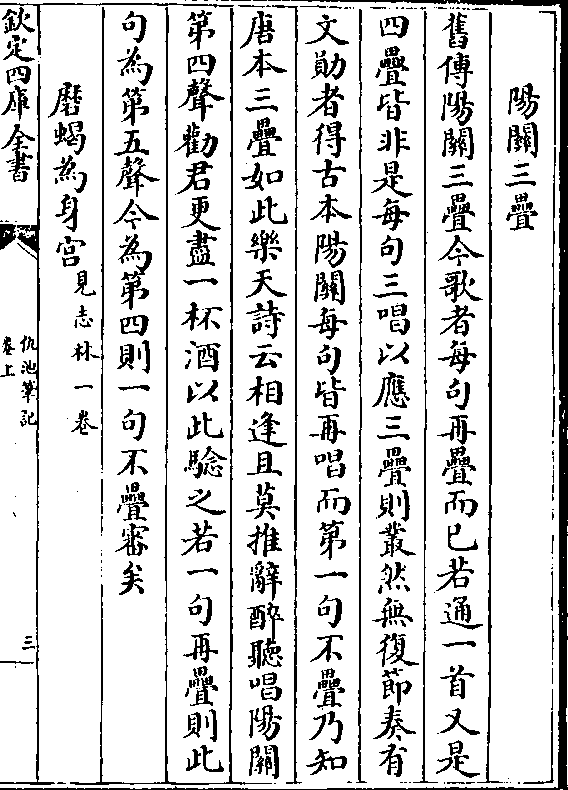 陽關三疊
舊傳陽關三疊今歌者毎句再疊而已若通一首又是
四疊皆非是每句三唱以應三疊則叢然無復節奏有
文勛者得古本陽關每句皆再唱而第一句不疊乃知
唐本三疊如此樂天詩云相逢且莫推辭醉聽唱陽關
第四聲勸君更盡一杯酒以此驗之若一句再疊則此
句為第五聲今為第四則一句不疊審矣
磨蝎為身宮見志林一卷
欽定四庫全書
仇池筆記
卷上
三